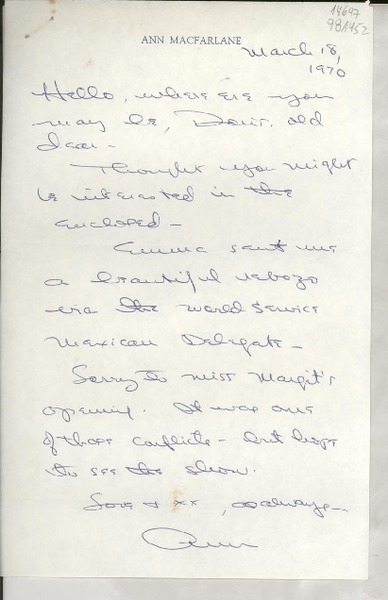 14697
981452
ANN MACFARLANE
March 18,
1970
Hello, where ere you
may be, Doris, old
dear -
Thought you might
be interested in the
enclosed -
Emma sent me
a beautiful rebozo
via the World Service
Mexican Delegate -
Sorry to miss Margit's
opening. It was one
of those conflicts - but hope
to see the show.
Love + xx, as always -
Ann